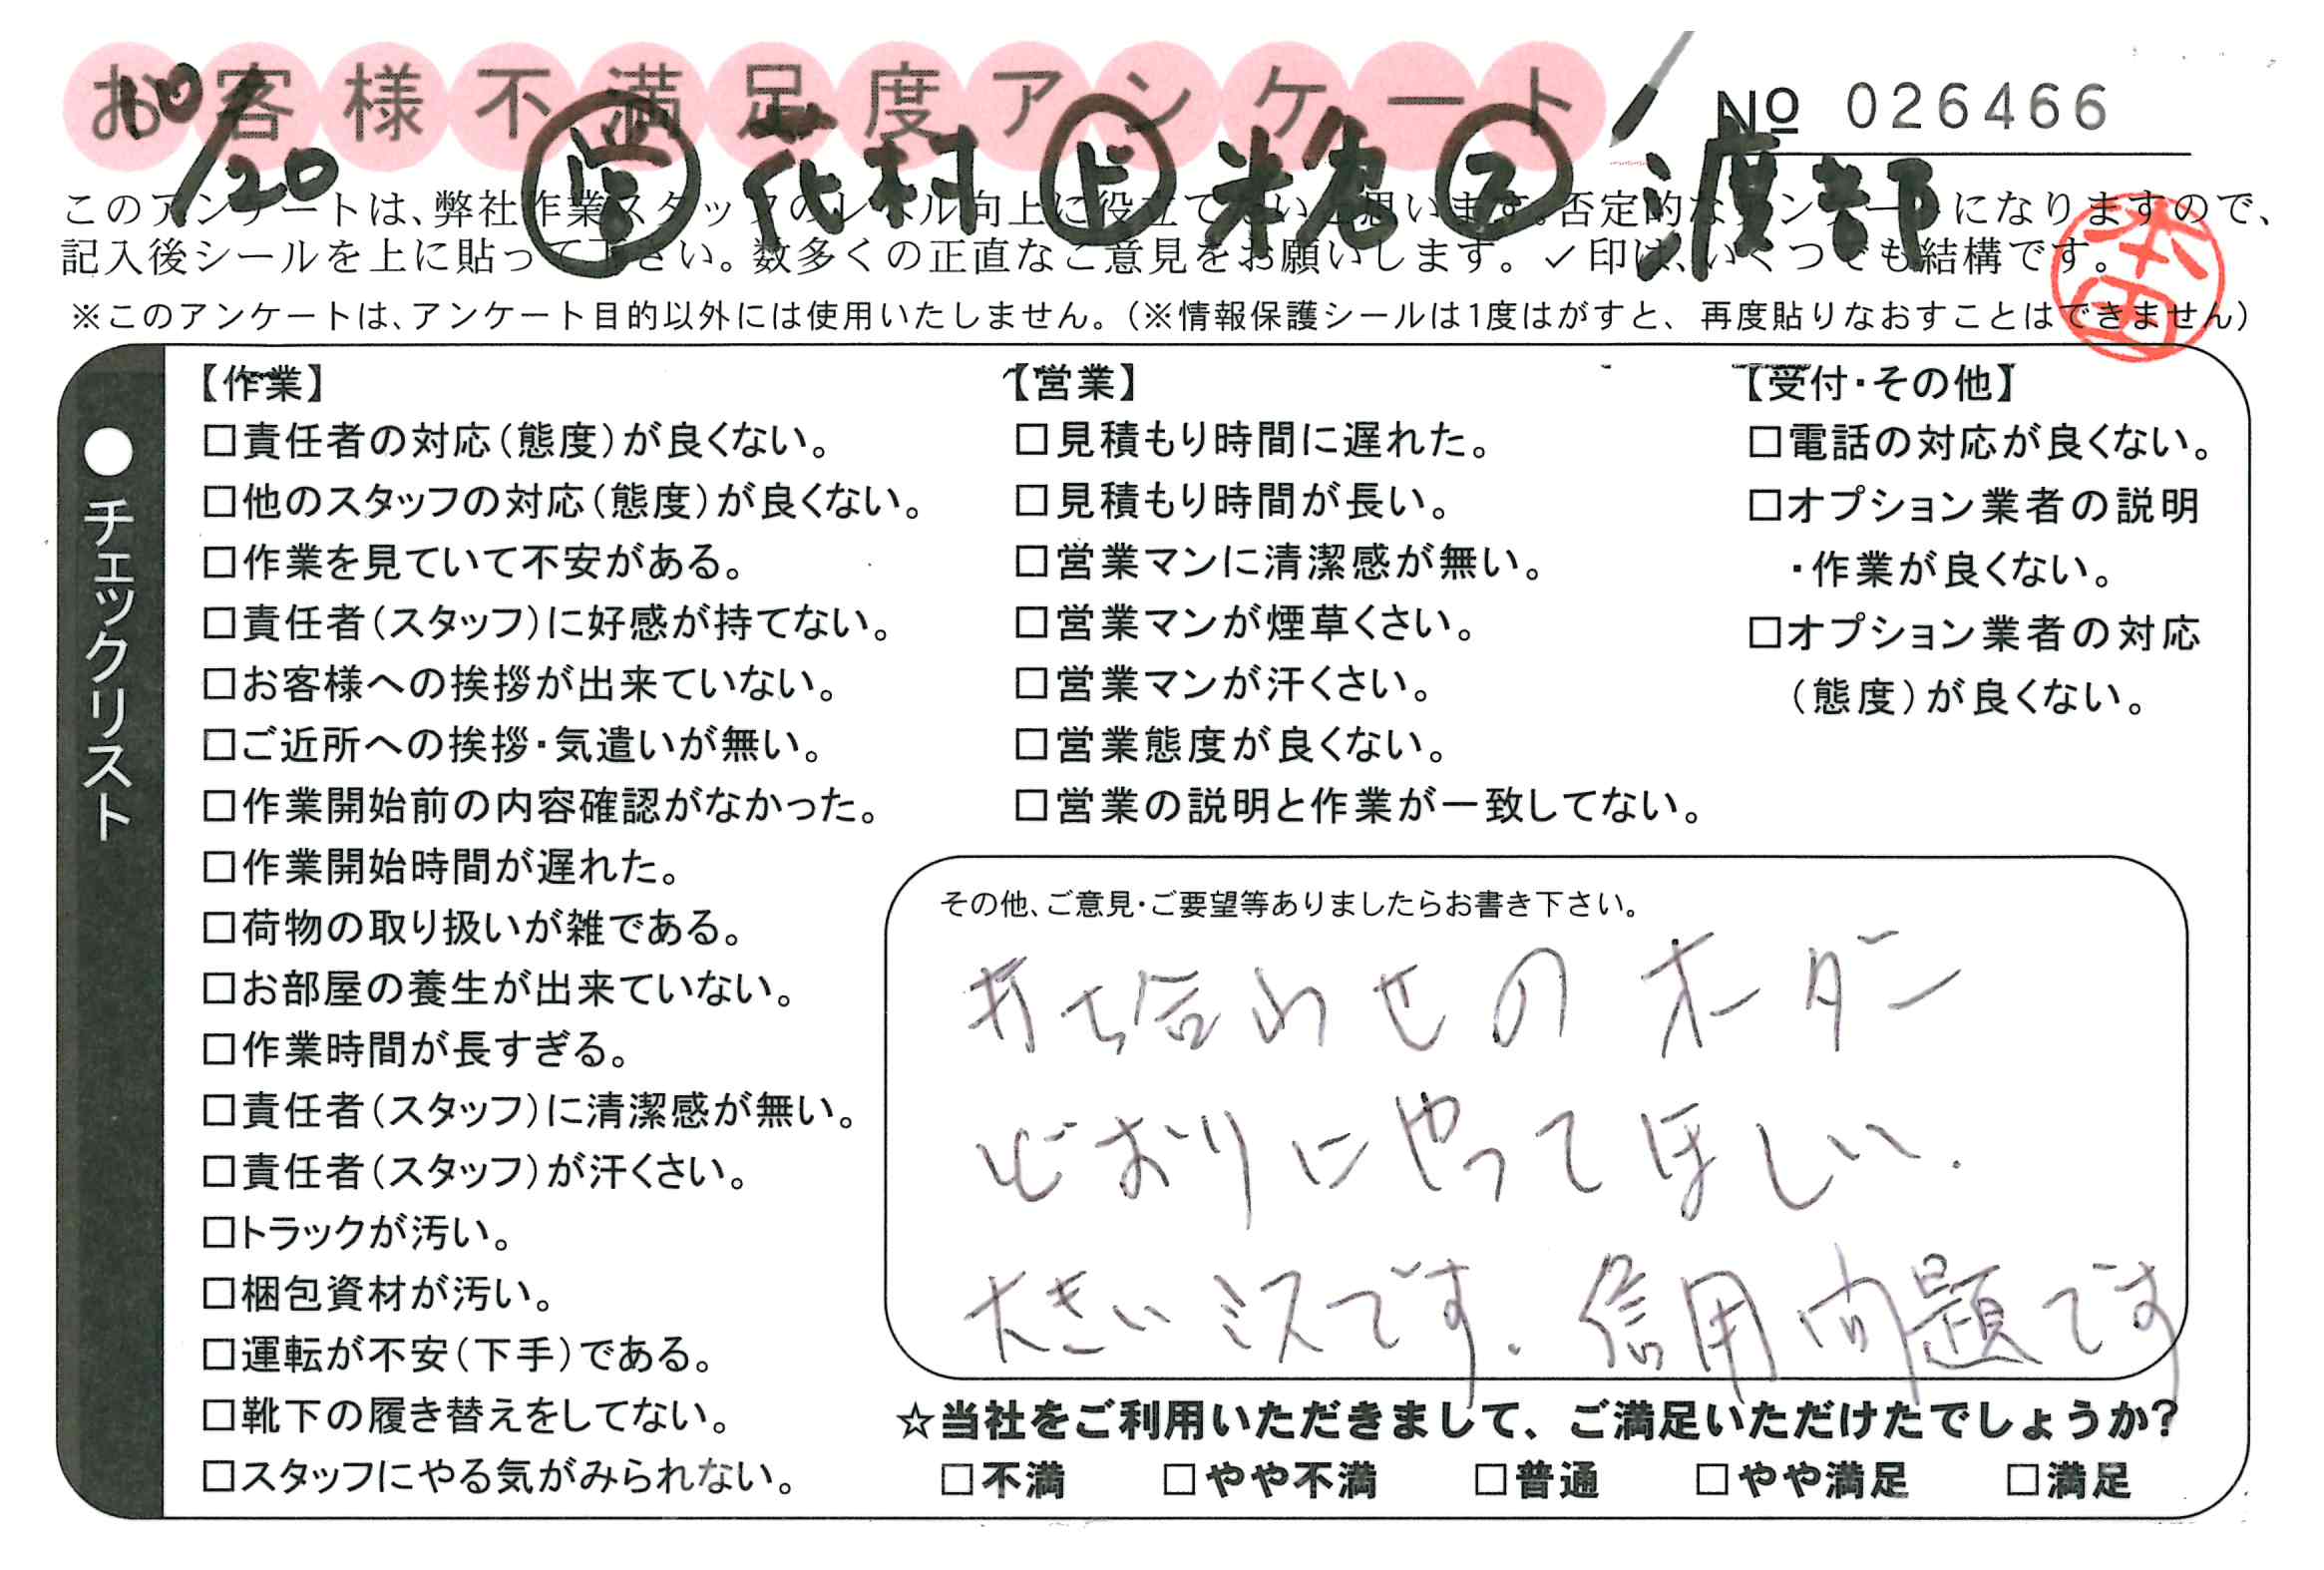 お客様不満足度アンケート
№ 026466
10/20 営 花村 上 米倉 2 渡部
このアンケートは、弊社作業スタッフのレベル向上に役立てたいと思います。否定的なアンケートになりますので、
記入後シールを上に貼って下さい。数多くの正直なご意見をお願いします。✓印は、いくつでも結構です。
本田
※このアンケートは、アンケート目的以外には使用いたしません。(※情報保護シールは1度はがすと、再度貼りなおすことはできません)
●チェックリスト
【作業】
□責任者の対応(態度)が良くない。
□他のスタッフの対応(態度)が良くない。
□作業を見ていて不安がある。
□責任者(スタッフ)に好感が持てない。
□お客様への挨拶が出来ていない。
□ご近所への挨拶・気遣いが無い。
□作業開始前の内容確認がなかった。
□作業開始時間が遅れた。
□荷物の取り扱いが雑である。
□お部屋の養生が出来ていない。
□作業時間が長すぎる。
□責任者(スタッフ)に清潔感が無い。
□責任者(スタッフ)が汗くさい。
□トラックが汚い。
□梱包資材が汚い。
□運転が不安(下手)である。
□靴下の履き替えをしてない。
□スタッフにやる気がみられない。
【営業】
□見積もり時間に遅れた。
□見積もり時間が長い。
□営業マンに清潔感が無い。
□営業マンが煙草くさい。
□営業マンが汗くさい。
□営業態度が良くない。
□営業の説明と作業が一致してない。
【受付・その他】
□電話の対応が良くない。
□オプション業者の説明
・作業が良くない。
□オプション業者の対応
(態度)が良くない。
その他、ご意見・ご要望等ありましたらお書き下さい。
打ち合わせのオーダー
どおりにやってほしい.
大きいミスです. 信用問題です
☆当社をご利用いただきまして、ご満足いただけたでしょうか?
□不満 □やや不満 □普通 □やや満足 □満足